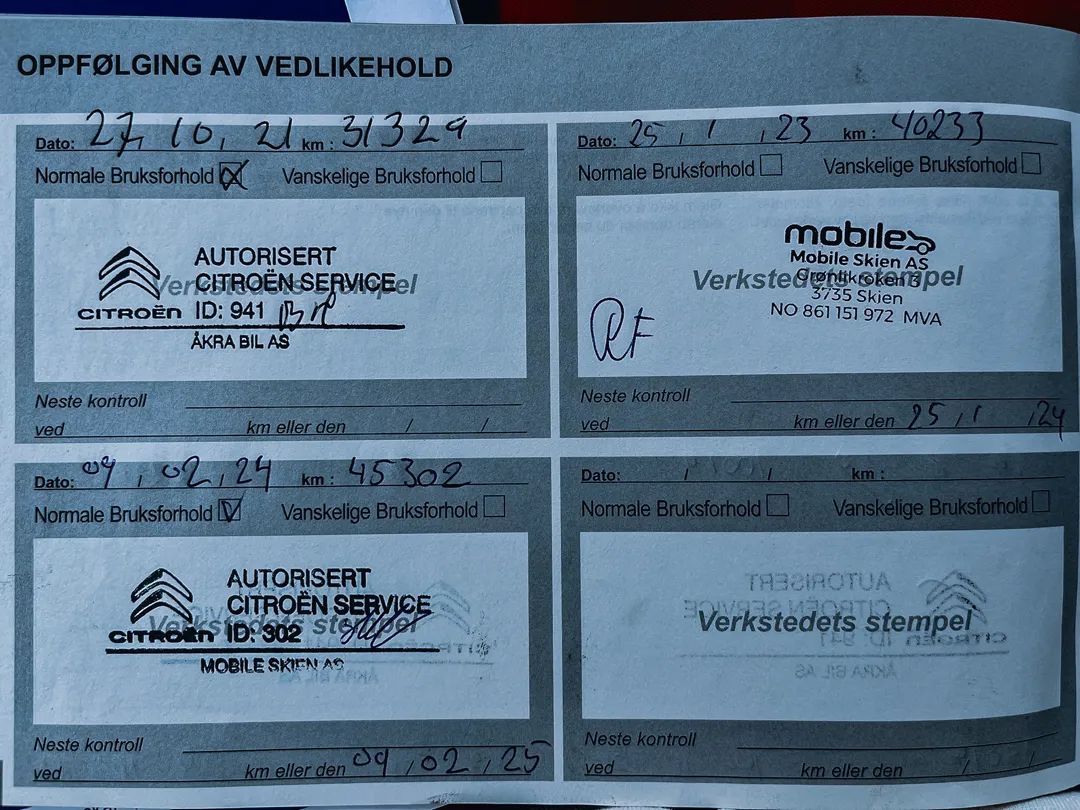 OPPFØLGING AV VEDLIKEHOLD
Dato: 27, 10, 21 km : 31329
Normale Bruksforhold Vanskelige Bruksforhold
AUTORISERT
CITROËN SERVICE
Verkstedets stempel
CITROËN ID: 941
ÅKRA BIL AS
Neste kontroll
ved km eller den / /
Dato: 25 / 1 / 23 km : 40233
Normale Bruksforhold Vanskelige Bruksforhold
mobile
Mobile Skien AS
Verkstedets stempel
Grønlikroken 3
3735 Skien
NO 861 151 972 MVA
RF
Neste kontroll
ved km eller den 25 / 1 / 24
Dato: 09 / 02 / 24 km : 45302
Normale Bruksforhold V Vanskelige Bruksforhold
AUTORISERT
CITROËN SERVICE
Verkstedets stempel
CITROËN ID: 302
MOBILE SKIEN AS
Neste kontroll
ved km eller den 09 / 02 / 25
Dato: / / km :
Normale Bruksforhold Vanskelige Bruksforhold
Verkstedets stempel
Neste kontroll
ved km eller den / /